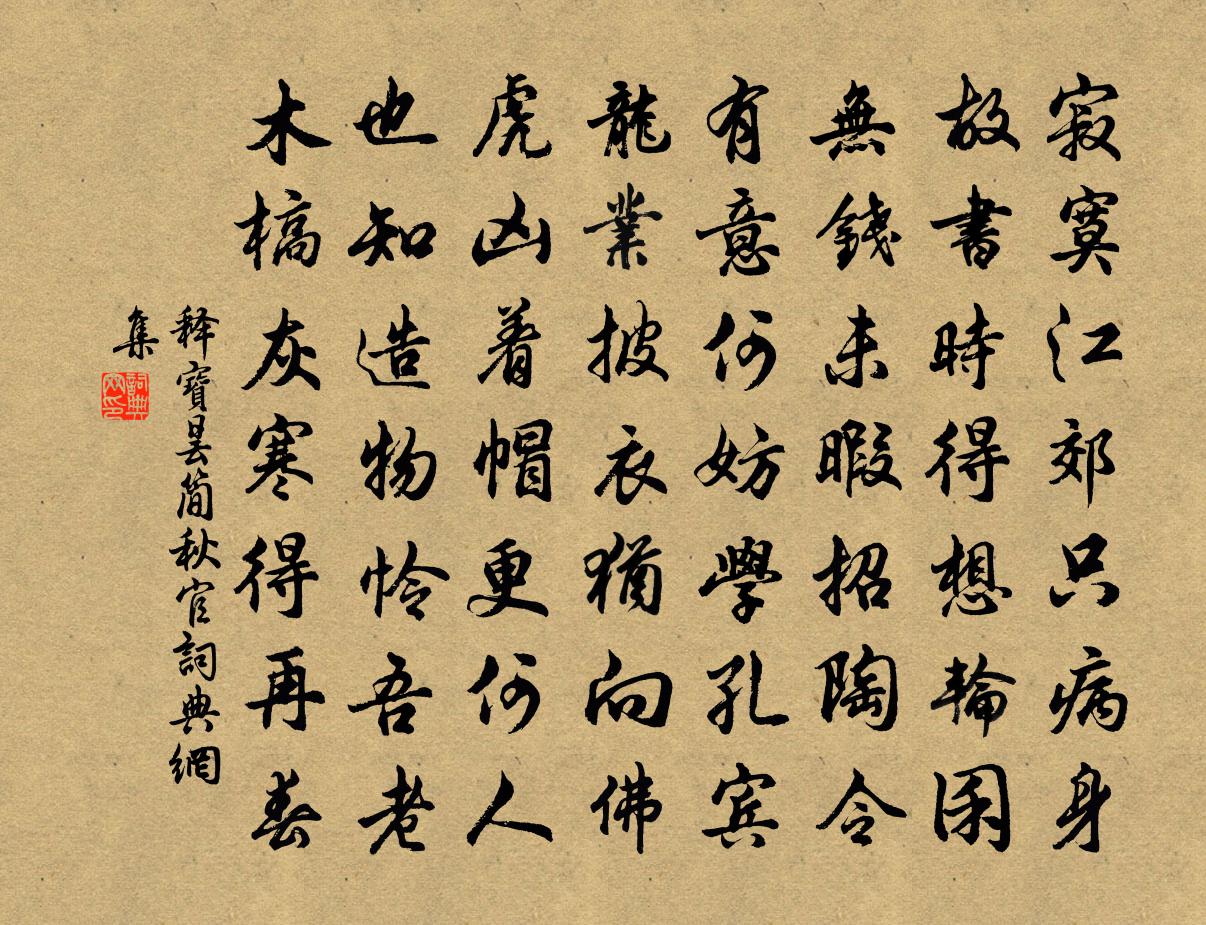 寂寞江郊只病身
故書時得想輪囷
無錢未暇招陶令
有意何妨學孔宾
龍業披衣猶向佛
虎凶着帽更何人
也知造物怜吾老
木槁灰寒得再春
释寶曇簡秋官詞典網
集
詞典